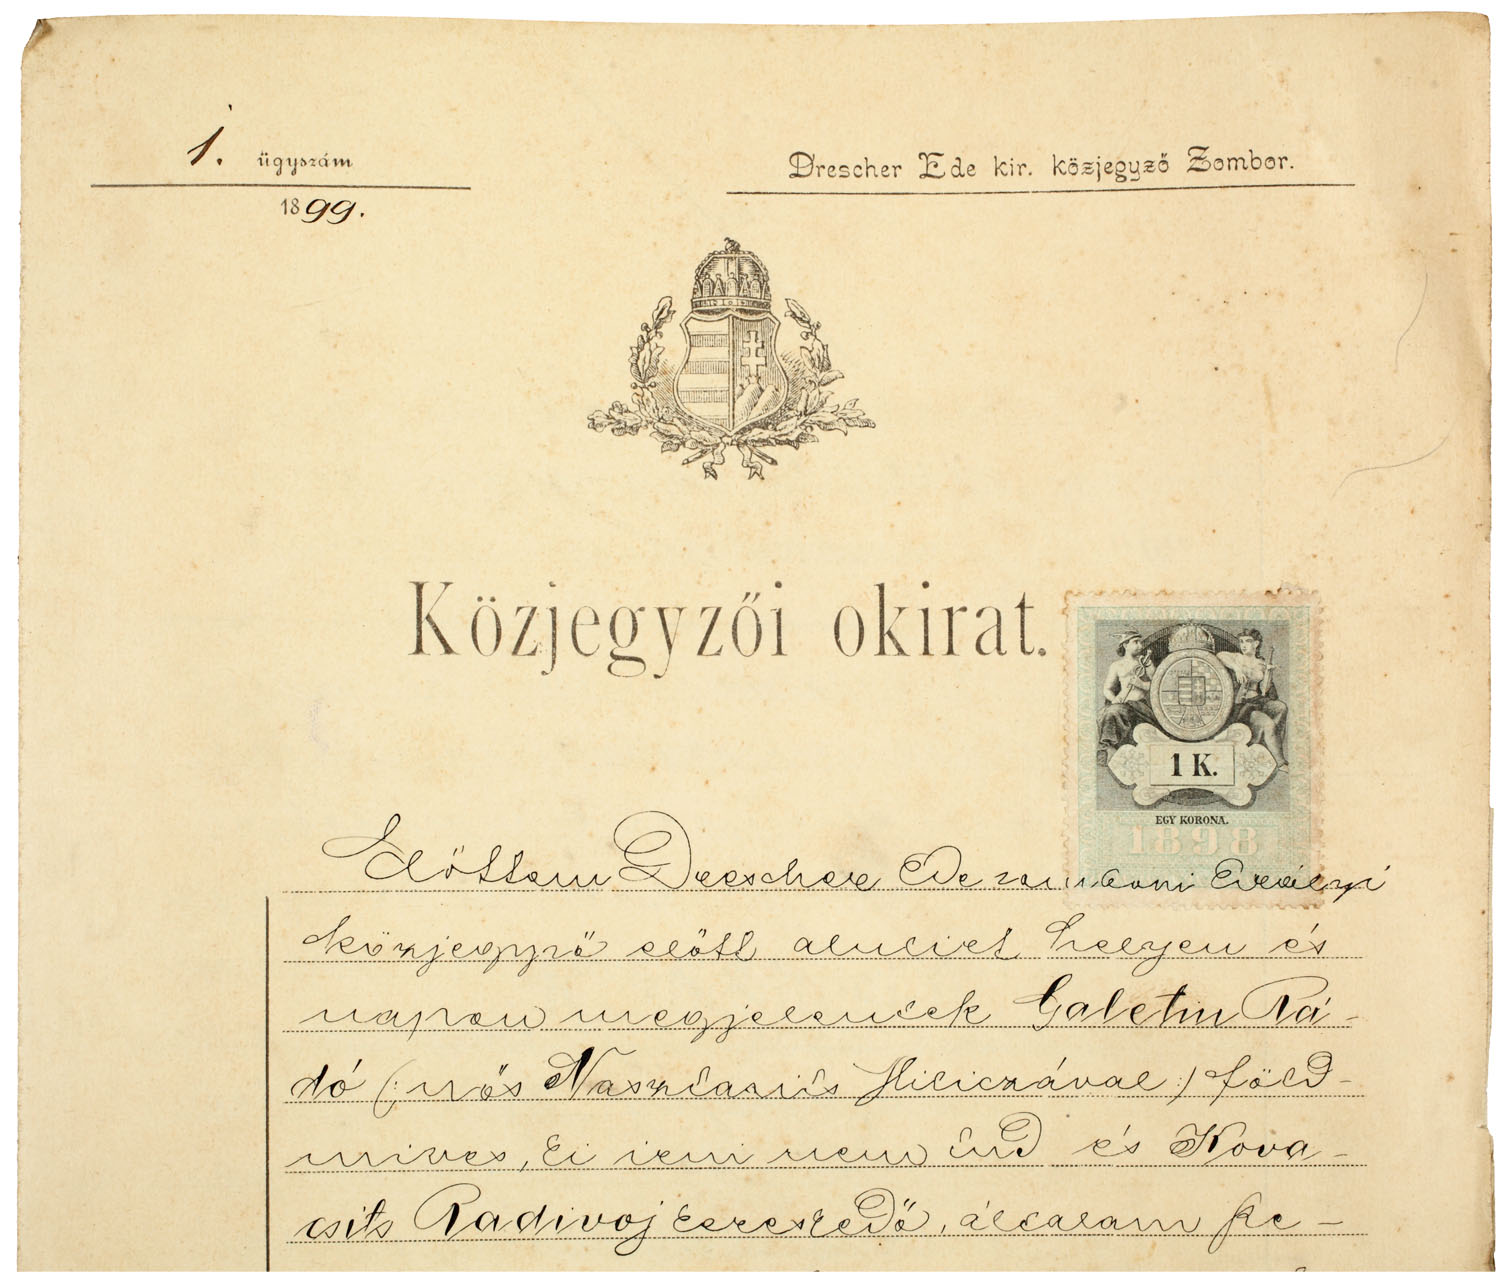 1. ügyszám
1899.
Drescher Ede kir. közjegyző Zombor.
Közjegyzői okirat.
1 K.
EGY KORONA.
1898
Előttem Drescher Ede zombori királyi
közjegyző előtt alulirt helyen és
napon megjelentek Galetin Rá-
dó (: nős Nasztasits Miliczával :) föld-
mives, ki irni nem tud és Kova-
csits Radivoj kereskedő, általam sze-